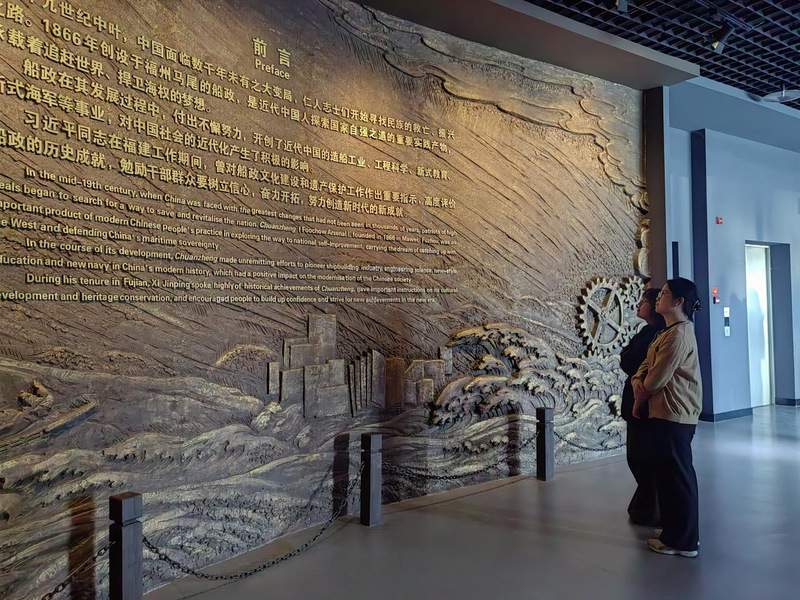 前言
Preface
九世纪中叶，中国面临数千年未有之大变局，仁人志士们开始寻找民族的救亡、振兴
之路。1866年创设于福州马尾的船政，是近代中国人探索国家自强之道的重要实践产物，
承载着追赶世界、捍卫海权的梦想。
船政在其发展过程中，付出不懈努力，开创了近代中国的造船工业、工程科学、新式教育、
新式海军等事业，对中国社会的近代化产生了积极的影响。
习近平同志在福建工作期间，曾对船政文化建设和遗产保护工作作出重要指示，高度评价
船政的历史成就，勉励干部群众要树立信心，奋力开拓，努力创造新时代的新成就
In the mid-19th century, when China was faced with the greatest changes that had not been seen in thousands of years, patriots of high
eals began to search for a way to save and revitalise the nation. Chuanzheng (Foochow Arsenal), founded in 1866 in Mawei, Fuzhou, was an
mportant product of modern Chinese people's practice in exploring the way to national self-improvement, carrying the dream of catching up with
e West and defending China's maritime sovereignty.
In the course of its development, Chuanzheng made unremitting efforts to pioneer shipbuilding industry, engineering science, new-style
ducation and new navy in China's modern history, which had a positive impact on the modernisation of the Chinese society.
During his tenure in Fujian, Xi Jinping spoke highly of historical achievements of Chuanzheng, gave important instructions on its cultural
evelopment and heritage conservation, and encouraged people to build up confidence and strive for new achievements in the new era.